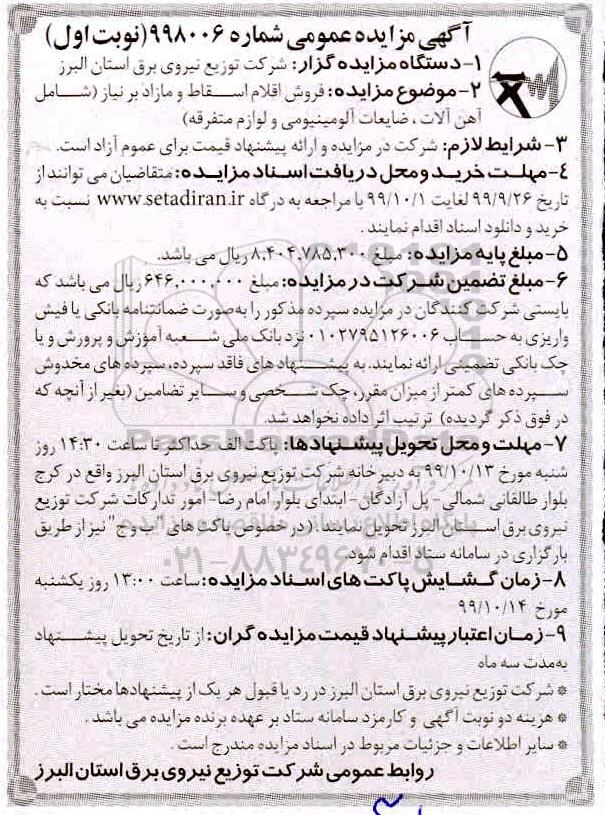 آگهی مزایده عمومی شماره ۹۹۸۰۰۶(نوبت اول)
۱-دستگاه مزایده گزار: شرکت توزیع نیروی برق استان البرز
۲-موضوع مزایده: فروش اقلام اسقاط و مازاد بر نیاز (شامل
آهن آلات ، ضایعات آلومینیومی و لوازم متفرقه)
۳- شرایط لازم: شرکت در مزایده و ارائه پیشنهاد قیمت برای عموم آزاد است.
۴-مهلت خرید و محل دریافت اسناد مزایده: متقاضیان می توانند از
تاریخ ۹۹/۹/۲۶ لغایت ۹۹/۱۰/۱ با مراجعه به درگاه www.setadiran.ir نسبت به
خرید و دانلود اسناد اقدام نمایند .
۵-مبلغ پایه مزایده: مبلغ ۸,۴۰۴,۷۸۵,۳۰۰ ریال می باشد.
۶-مبلغ تضمین شرکت در مزایده: مبلغ ۶۴۶,۰۰۰,۰۰۰ ریال می باشد که
بایستی شرکت کنندگان در مزایده سپرده مذکور را به‌صورت ضمانتنامه بانکی یا فیش
واریزی به حساب ۰۱۰۲۷۹۵۱۲۶۰۰۶ نزد بانک ملی شعبه آموزش و پرورش و یا
چک بانکی تضمینی ارائه نمایند. به پیشنهادهای فاقد سپرده، سپرده های مخدوش
سپرده های کمتر از میزان مقرر، چک شخصی و سایر تضامین (بغیر از آنچه که
در فوق ذکر گردیده) ترتیب اثر داده نخواهد شد.
۷-مهلت و محل تحویل پیشنهادها: پاکت الف حداکثر تا ساعت ۱۴:۳۰ روز
شنبه مورخ ۹۹/۱۰/۱۳ به دبیرخانه شرکت توزیع نیروی برق استان البرز واقع در کرج
بلوار طالقانی شمالی - پل آزادگان- ابتدای بلوار امام رضا- امور تدارکات شرکت توزیع
نیروی برق استان البرز تحویل نمایند. (در خصوص پاکت های "ب و ج" نیز از طریق
بارگزاری در سامانه ستاد اقدام شود)
۸-زمان گشایش پاکت های اسناد مزایده: ساعت ۱۳:۰۰ روز یکشنبه
مورخ ۹۹/۱۰/۱۴
۹-زمان اعتبار پیشنهاد قیمت مزایده گران: از تاریخ تحویل پیشنهاد
به‌مدت سه ماه
* شرکت توزیع نیروی برق استان البرز در رد یا قبول هر یک از پیشنهادها مختار است .
* هزینه دو نوبت آگهی و کارمزد سامانه ستاد بر عهده برنده مزایده می باشد .
* سایر اطلاعات و جزئیات مربوط در اسناد مزایده مندرج است .
روابط عمومی شرکت توزیع نیروی برق استان البرز
۰۲۱-۸۸۳۴۹۶۷۰-۵